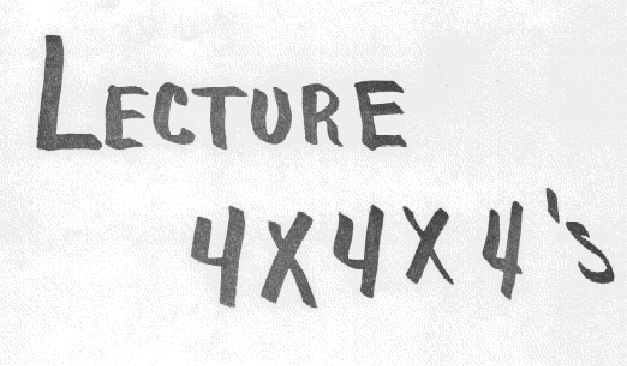 LECTURE
4X4X4's